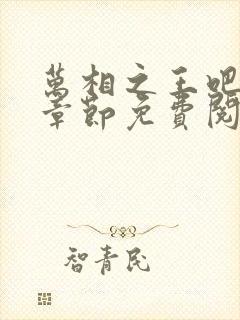 萬相之王吧
章節免費閱
智青民